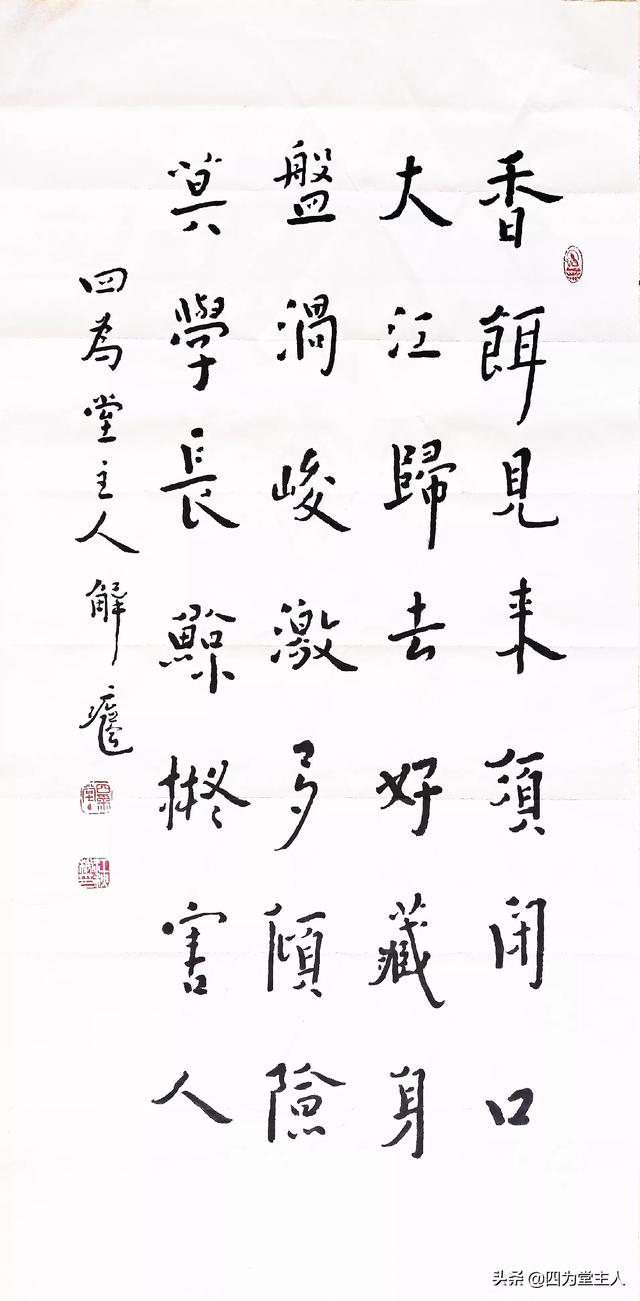 香餌見来須閉口
大江歸去好藏身
盤渦峻激多傾險
莫學長鯨擬害人
四為堂主人解
头条 @四为堂主人